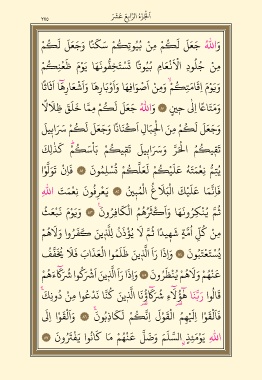 الجزء الرابع عشر
٢٧٥
وَاللهُ جَعَلَ لَكُمْ مِنْ بُيُوتِكُمْ سَكَنًا وَجَعَلَ لَكُمْ
مِنْ جُلُودِ الْاَنْعَامِ بُيُوتًا تَسْتَخِفُّونَهَا يَوْمَ ظَعْنِكُمْ
وَيَوْمَ اِقَامَتِكُمْ وَمِنْ اَصْوَافِهَا وَاَوْبَارِهَا وَاَشْعَارِهَا اَثَاثًا
وَمَتَاعًا اِلٰى حِينٍ ٨٠ وَاللهُ جَعَلَ لَكُمْ مِمَّا خَلَقَ ظِلَالًا
وَجَعَلَ لَكُمْ مِنَ الْجِبَالِ اَكْنَانًا وَجَعَلَ لَكُمْ سَرَابِيلَ
تَقِيكُمُ الْحَرَّ وَسَرَابِيلَ تَقِيكُمْ بَأْسَكُمْ كَذٰلِكَ
يُتِمُّ نِعْمَتَهُ عَلَيْكُمْ لَعَلَّكُمْ تُسْلِمُونَ ٨١ فَاِنْ تَوَلَّوْا
فَاِنَّمَا عَلَيْكَ الْبَلَاغُ الْمُبِينُ ٨٢ يَعْرِفُونَ نِعْمَتَ اللهِ
ثُمَّ يُنْكِرُونَهَا وَاَكْثَرُهُمُ الْكَافِرُونَ ٨٣ وَيَوْمَ نَبْعَثُ
مِنْ كُلِّ اُمَّةٍ شَهِيدًا ثُمَّ لَا يُؤْذَنُ لِلَّذِينَ كَفَرُوا وَلَا هُمْ
يُسْتَعْتَبُونَ ٨٤ وَاِذَا رَاَ الَّذِينَ ظَلَمُوا الْعَذَابَ فَلَا يُخَفَّفُ
عَنْهُمْ وَلَا هُمْ يُنْظَرُونَ ٨٥ وَاِذَا رَاَ الَّذِينَ اَشْرَكُوا شُرَكَاءَهُمْ
قَالُوا رَبَّنَا هٰؤُلَاءِ شُرَكَاؤُنَا الَّذِينَ كُنَّا نَدْعُوا مِنْ دُونِكَ
فَاَلْقَوْا اِلَيْهِمُ الْقَوْلَ اِنَّكُمْ لَكَاذِبُونَ ٨٦ وَاَلْقَوْا اِلَى
اللهِ يَوْمَئِذٍ السَّلَمَ وَضَلَّ عَنْهُمْ مَا كَانُوا يَفْتَرُونَ ٨٧